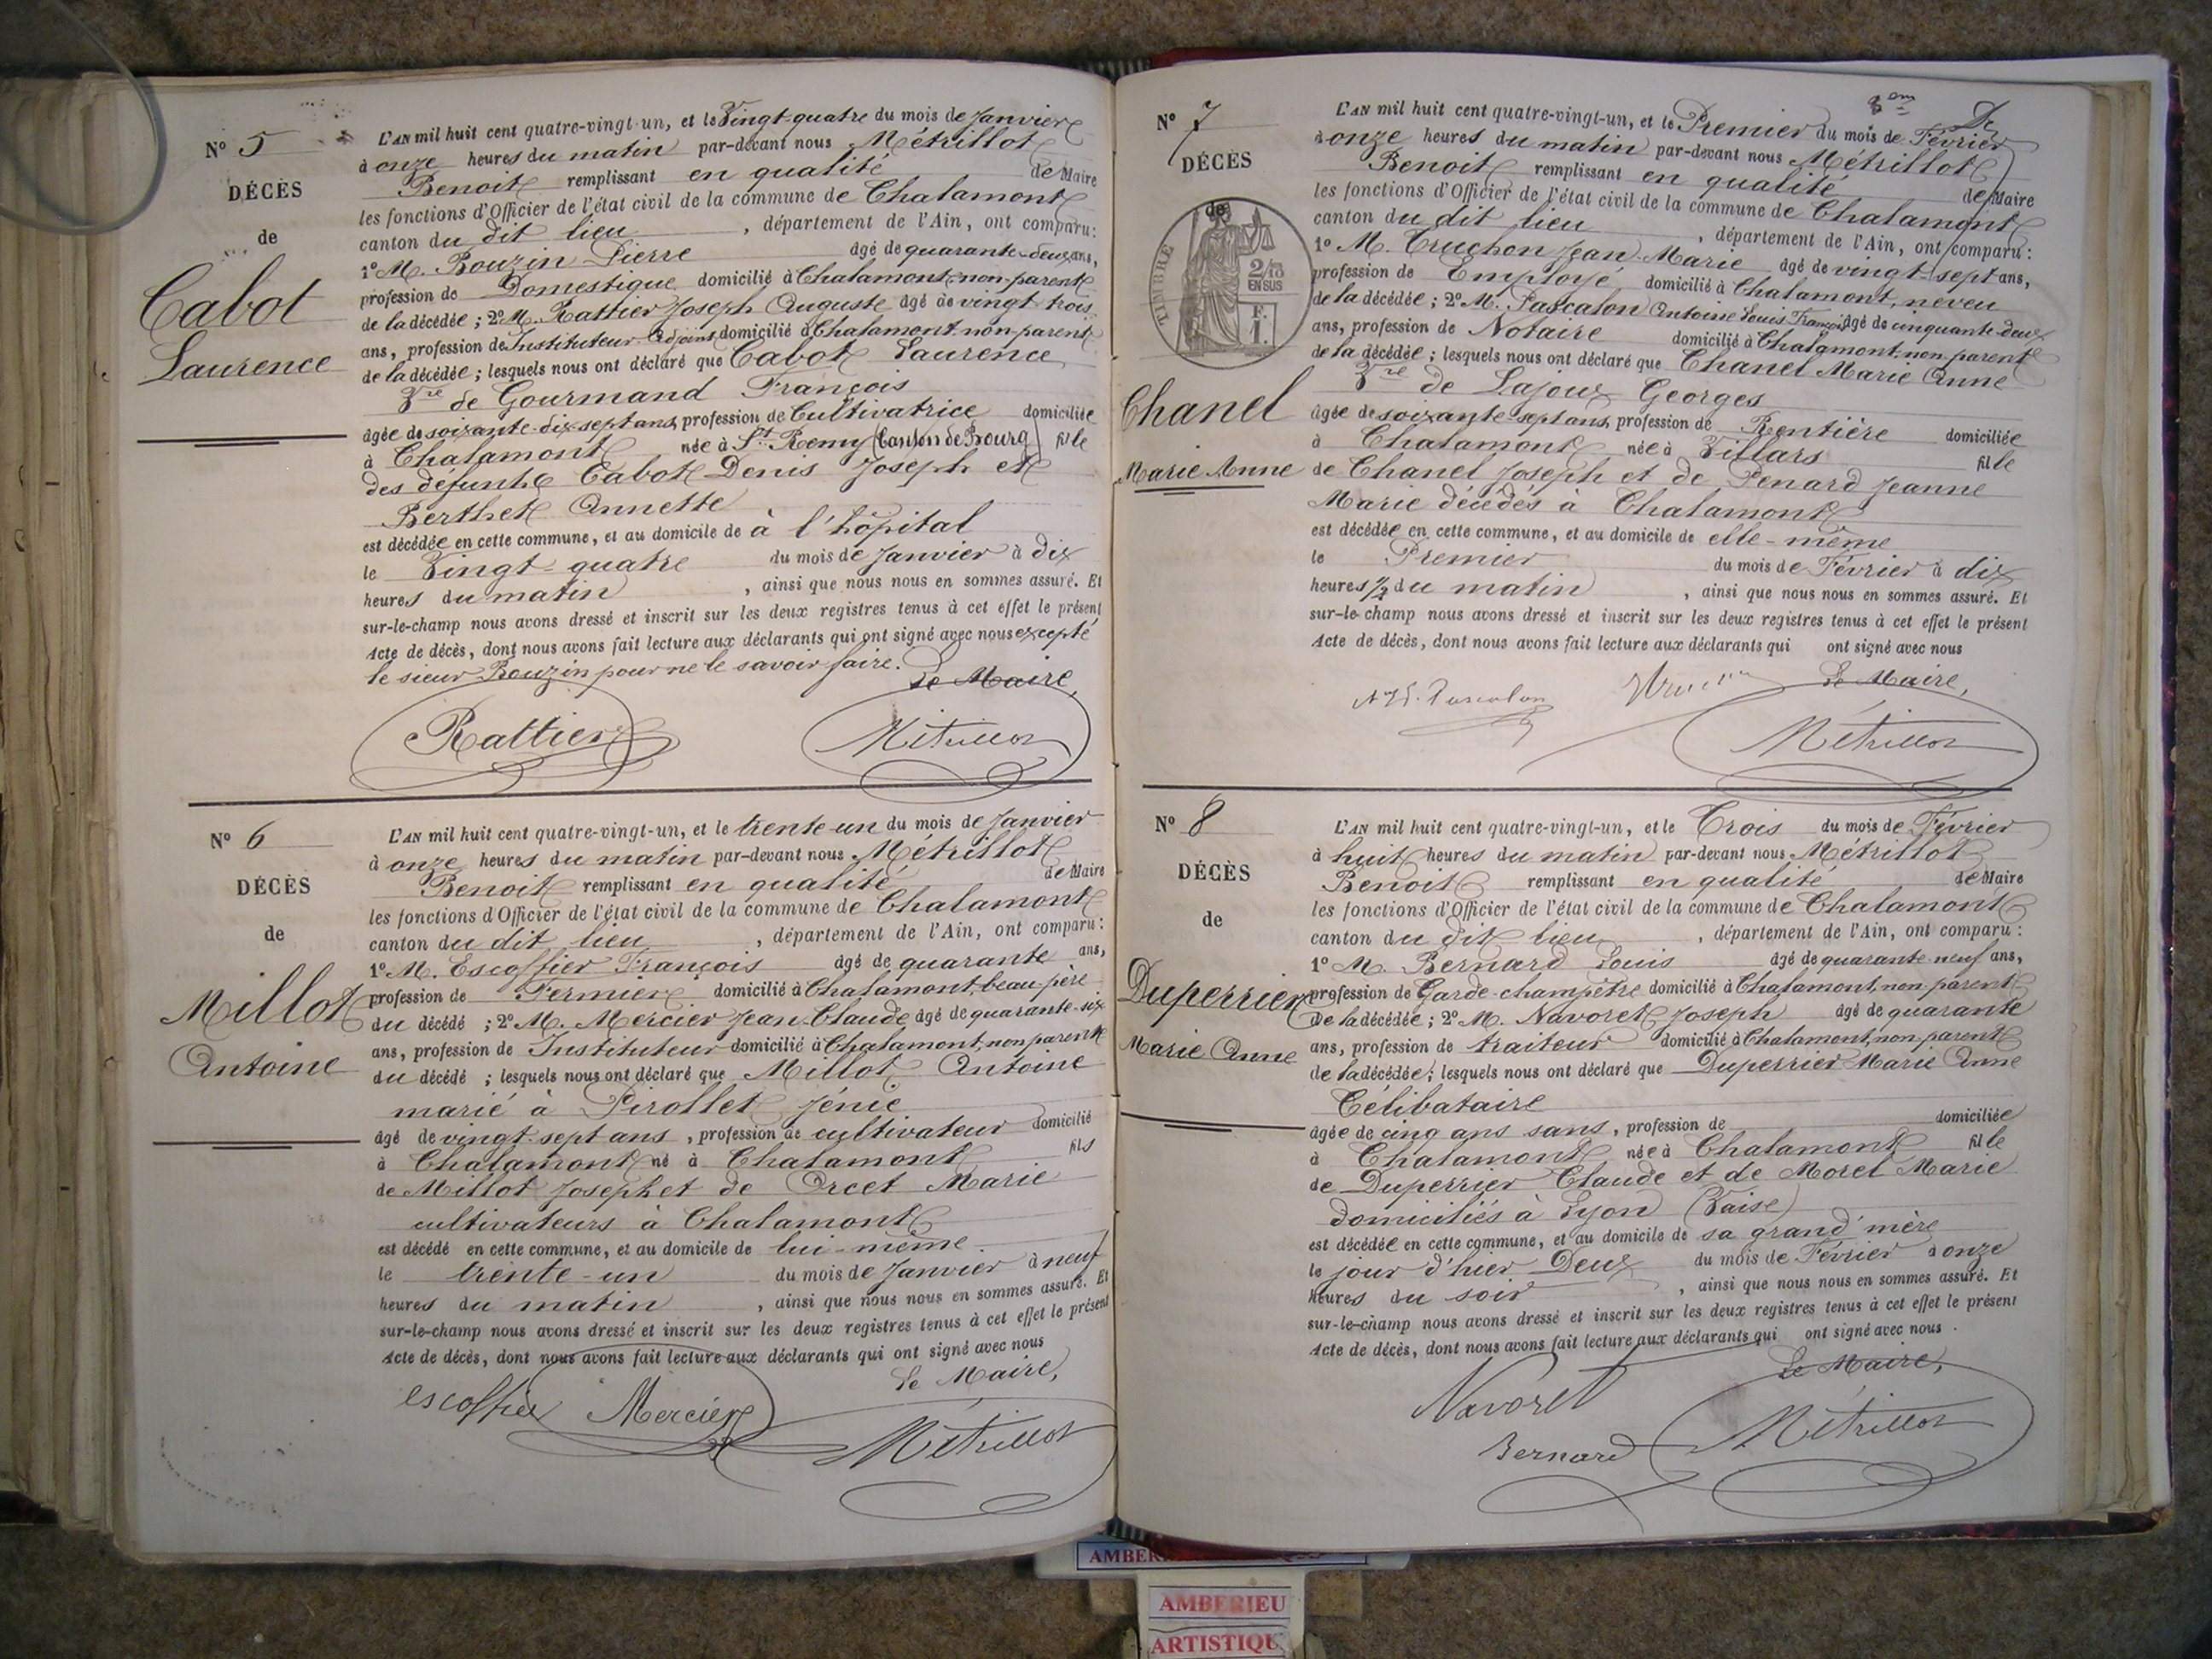 Nº 5
DÉCÈS
de
Cabot
Laurence
L'AN mil huit cent quatre-vingt-un, et le Vingt-quatre du mois de Janvier
à onze heures du matin par-devant nous Métrillot
Benoit remplissant en qualité de Maire
les fonctions d'Officier de l'état civil de la commune de Chalamont
canton du dit lieu, département de l'Ain, ont comparu:
1º M. Bouzin Pierre âgé de quarante-deux ans,
profession de Domestique domicilié à Chalamont non-parent
de la décédée; 2º M. Rattier Joseph Auguste âgé de vingt trois
ans, profession de Instituteur-Adjoint domicilié à Chalamont non-parent
de la décédée; lesquels nous ont déclaré que Cabot Laurence
Vve de Gourmand François
âgée de soixante-dix sept ans, profession de Cultivatrice domiciliée
à Chalamont née à St Remy (Canton de Bourg) fille
des défunts Cabot Denis Joseph et
Berthet Annette
est décédée en cette commune, et au domicile de à l'hôpital
le Vingt-quatre du mois de Janvier à dix
heures du matin, ainsi que nous nous en sommes assuré. Et
sur-le-champ nous avons dressé et inscrit sur les deux registres tenus à cet effet le présent
Acte de décès, dont nous avons fait lecture aux déclarants qui ont signé avec nous excepté
le sieur Bouzin pour ne le savoir faire.
Le Maire,
Rattier Métrillot
Nº 6
DÉCÈS
de
Millot
Antoine
L'AN mil huit cent quatre-vingt-un, et le trente-un du mois de Janvier
à onze heures du matin par-devant nous Métrillot
Benoit remplissant en qualité de Maire
les fonctions d'Officier de l'état civil de la commune de Chalamont
canton du dit lieu, département de l'Ain, ont comparu:
1º M. Escoffier François âgé de quarante ans,
profession de Fermier domicilié à Chalamont, beau-père
du décédé; 2º M. Mercier Jean-Claude âgé de quarante-six
ans, profession de Instituteur domicilié à Chalamont, non parent
du décédé; lesquels nous ont déclaré que Millot Antoine
marié à Pirollet Jénie
âgé de vingt-sept ans, profession de cultivateur domicilié
à Chalamont né à Chalamont fils
de Millot Joseph et de Orcet Marie
cultivateurs à Chalamont
est décédé en cette commune, et au domicile de lui-même.
le trente-un du mois de Janvier à neuf
heures du matin, ainsi que nous nous en sommes assuré. Et
sur-le-champ nous avons dressé et inscrit sur les deux registres tenus à cet effet le présent
Acte de décès, dont nous avons fait lecture aux déclarants qui ont signé avec nous
Le Maire,
escoffier Mercier Métrillot
Nº 7
DÉCÈS
de
TIMBRE
2/10
EN SUS
F.
1.
Chanel
Marie Anne
L'AN mil huit cent quatre-vingt-un, et le Premier du mois de Février
à onze heures du matin par-devant nous Métrillot
Benoit remplissant en qualité de Maire
les fonctions d'Officier de l'état civil de la commune de Chalamont
canton du dit lieu, département de l'Ain, ont comparu:
1º M. Truchon Jean-Marie âgé de vingt-sept ans,
profession de Employé domicilié à Chalamont, neveu
de la décédée; 2º M. Pascalon Antoine Louis François âgé de cinquante-deux
ans, profession de Notaire domicilié à Chalamont non-parent
de la décédée; lesquels nous ont déclaré que Chanel Marie Anne
Vve de Lajoux Georges
âgée de soixante-sept ans, profession de Rentière domiciliée
à Chalamont née à Villars fille
de Chanel Joseph et de Penard Jeanne
Marie décédés à Chalamont
est décédée en cette commune, et au domicile de elle-même
le Premier du mois de Février à dix
heures 1/2 du matin, ainsi que nous nous en sommes assuré. Et
sur-le-champ nous avons dressé et inscrit sur les deux registres tenus à cet effet le présent
Acte de décès, dont nous avons fait lecture aux déclarants qui ont signé avec nous
Le Maire,
Pascalon Métrillot
Nº 8
DÉCÈS
de
Duperrier
Marie Anne
L'AN mil huit cent quatre-vingt-un, et le Trois du mois de Février
à huit heures du matin par-devant nous Métrillot
Benoit remplissant en qualité de Maire
les fonctions d'Officier de l'état civil de la commune de Chalamont
canton du dit lieu, département de l'Ain, ont comparu:
1º M. Bernard Louis âgé de quarante-neuf ans,
profession de Garde-champêtre domicilié à Chalamont, non parent
de la décédée; 2º M. Navoret Joseph âgé de quarante
ans, profession de traiteur domicilié à Chalamont, non parent
de la décédée; lesquels nous ont déclaré que Duperrier Marie Anne
Célibataire
âgée de cinq ans sans, profession de domiciliée
à Chalamont née à Chalamont fille
de Duperrier Claude et de Morel Marie
domiciliés à Lyon (Vaise)
est décédée en cette commune, et au domicile de sa grand'mère
le jour d'hier Deux du mois de Février à onze
heures du soir, ainsi que nous nous en sommes assuré. Et
sur-le-champ nous avons dressé et inscrit sur les deux registres tenus à cet effet le présent
Acte de décès, dont nous avons fait lecture aux déclarants qui ont signé avec nous.
Le Maire,
Navoret
Bernard Métrillot
AMBERIEU
ARTISTIQU